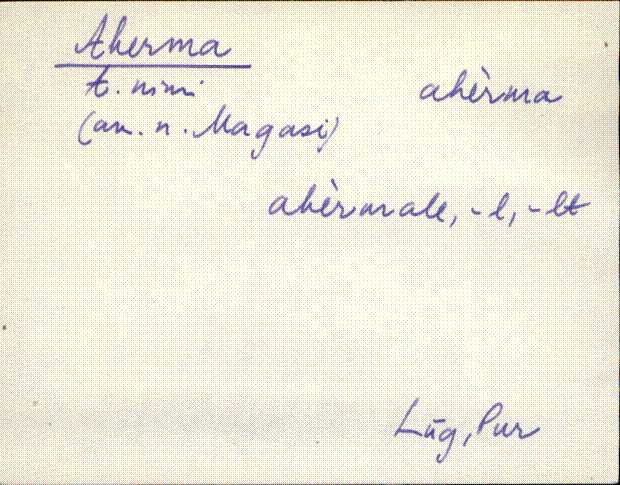 Aherma
t. nimi
ahèrma
(am. n. Magasi)
ahèrmale, -l, -lt
Lüg, Pur